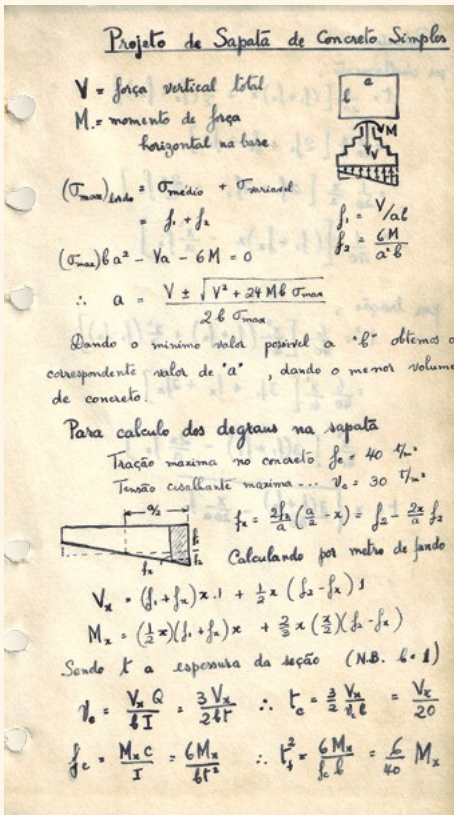 Projeto de Sapata de Concreto Simples
V = força vertical total
M = momento de força
horizontal na base
a
b
M
V
(σmax)bordo = σmédio + σvariavel
= f₁ + f₂
f₁ = V/ab
f₂ = 6M/a²b
(σmax) b a² - Va - 6M = 0
∴ a = (V ± √(V² + 24 M b σmax)) / (2 b σmax)
Dando o minimo valor posivel a "b" obtemos o
correspondente valor de "a" , dando o menor volume
de concreto.
Para calculo dos degraus na sapata
Tração maxima no concreto fc = 40 t/m²
Tensão cisalhante maxima ... vc = 30 t/m²
a/2
f₁
f₂
fx
x
fx = 2f₂/a (a/2 - x) = f₂ - 2x/a f₂
Calculando por metro de fundo
Vx = (f₁ + fx) x . 1 + ½ x (f₂ - fx) 1
Mx = (½ x)(f₁ + fx) x + ⅔ x (x/2)(f₂ - fx)
Sendo t a espessura da seção (N.B. b = 1)
vc = Vx Q / b I = 3 Vx / 2bt ∴ tc = 3/2 Vx / vc b = Vx / 20
fc = Mx c / I = 6 Mx / bt² ∴ t²t = 6 Mx / fc b = 6/40 Mx